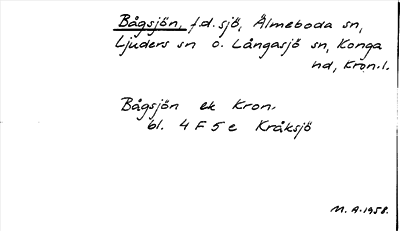 Bågsjön, f.d. sjö, Älmeboda sn,
Ljuders sn o. Långasjö sn, Konga
nd, Kron.l.
Bågsjön ek Kron.
bl. 4 F 5 e Kråksjö
M. A. 1958.